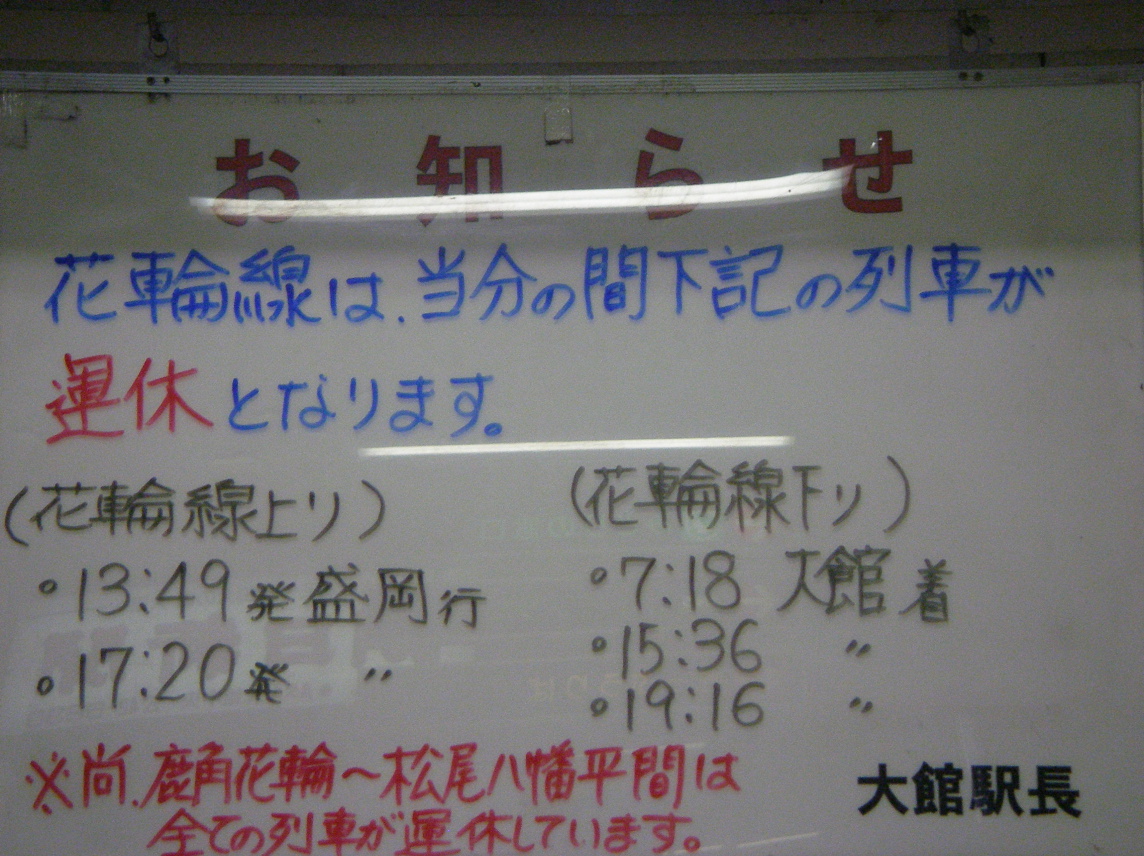 お知らせ
花輪線は、当分の間下記の列車が
運休となります。
(花輪線上り)
•13:49発盛岡行
•17:20発 〃
(花輪線下り)
•7:18 大館着
•15:36 〃
•19:16 〃
※尚、鹿角花輪〜松尾八幡平間は
全ての列車が運休しています。
大館駅長